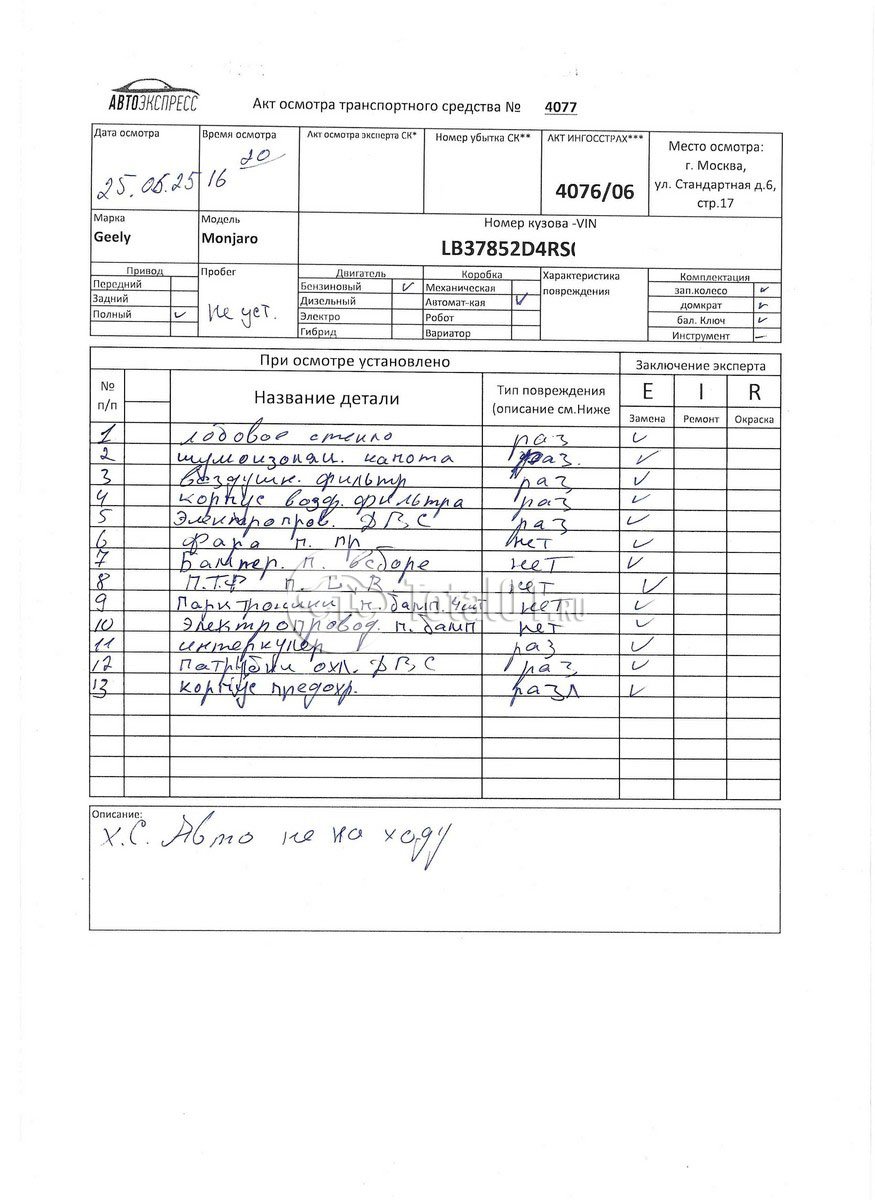 АВТОЭКСПРЕСС
Акт осмотра транспортного средства № 4077
Дата осмотра
25.06.25
Время осмотра
16 20
Акт осмотра эксперта СК*
Номер убытка СК**
АКТ ИНГОССТРАХ***
4076/06
Место осмотра:
г. Москва,
ул. Стандартная д.6,
стр.17
Марка
Geely
Модель
Monjaro
Номер кузова -VIN
LB37852D4RS
Привод
Передний
Задний
Полный ✓
Пробег
не уст.
Двигатель
Бензиновый ✓
Дизельный
Электро
Гибрид
Коробка
Механическая
Автомат-кая ✓
Робот
Вариатор
Характеристика
повреждения
Комплектация
зап.колесо ✓
домкрат ✓
бал. Ключ ✓
Инструмент –
При осмотре установлено
Заключение эксперта
№
п/п
Название детали
Тип повреждения
(описание см.Ниже
E I R
Замена Ремонт Окраска
1 лобовое стекло раз ✓
2 шумоизоляц. капота раз. ✓
3 воздушн. фильтр раз ✓
4 корпус возд. фильтра раз ✓
5 Электропров. ДВС раз ✓
6 Фара п. пр нет ✓
7 Бампер. п. в сборе нет ✓
8 П.Т.Ф п. нет ✓
9 Парктроники п. бамп. 4шт нет ✓
10 Электропровод. п. бамп нет ✓
11 интеркулер раз ✓
12 Патрубки охл. ДВС раз ✓
13 корпус предохр. разл ✓
Total01.RU
Описание:
Х.С. Авто не на ходу